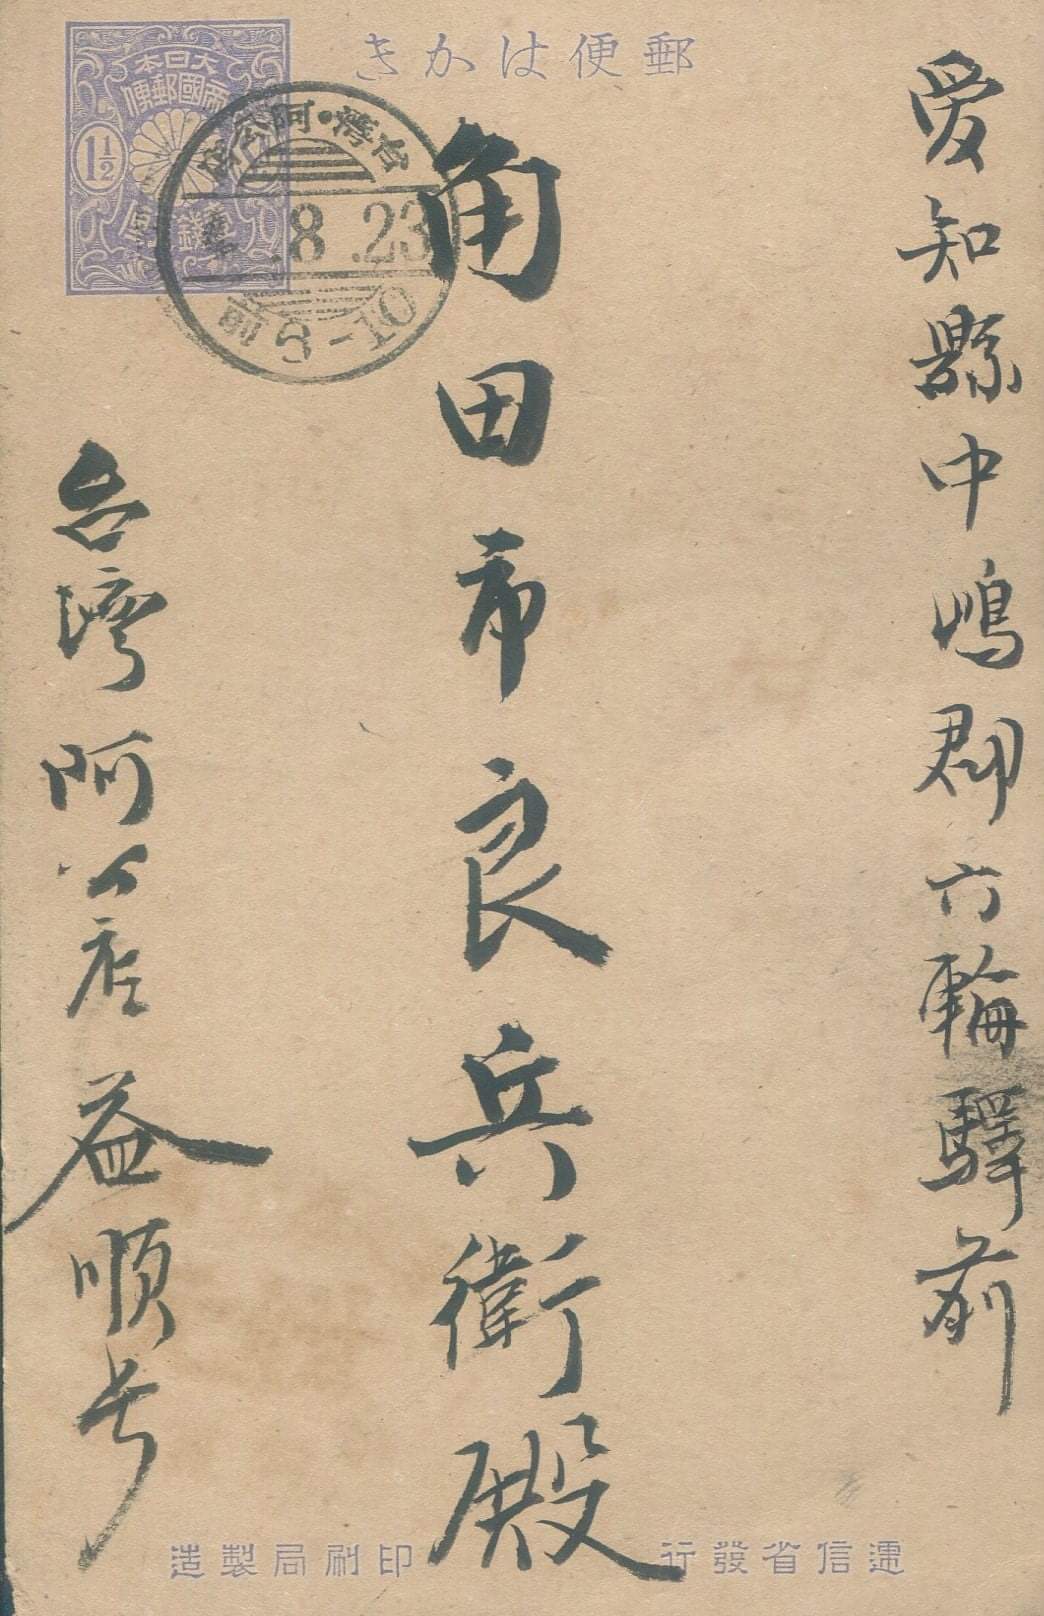 郵便はかき
大日本
帝國郵便
1½
壹錢五厘
台灣・阿公店
8.23
前8-10
愛知縣中嶋郡六輪驛前
角田市良兵衛殿
台湾阿公店益順号
逓信省發行
印刷局製造